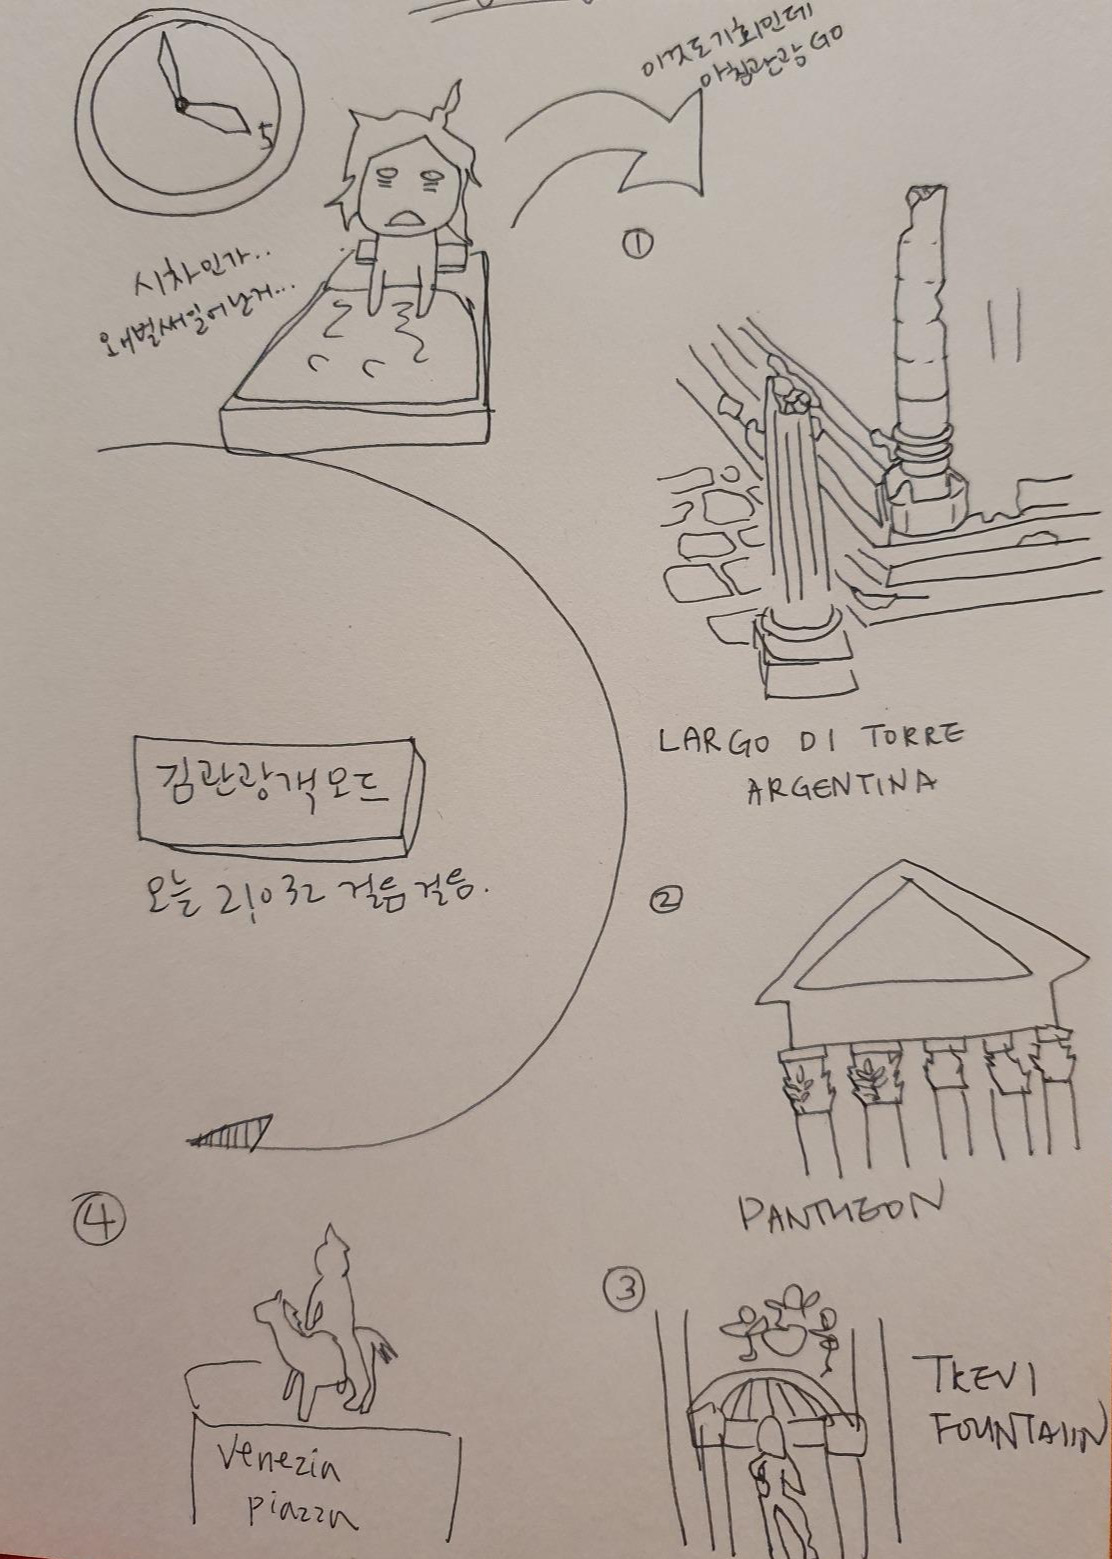 5
이것도기회인데
아침관광GO
시차인가..
왜벌써일어난거...
①
LARGO DI TORRE
ARGENTINA
김관광객모드
오늘 21,032 걸음걸음.
②
PANTHEON
③
TREVI
FOUNTAIIN
④
Venezia
piazza